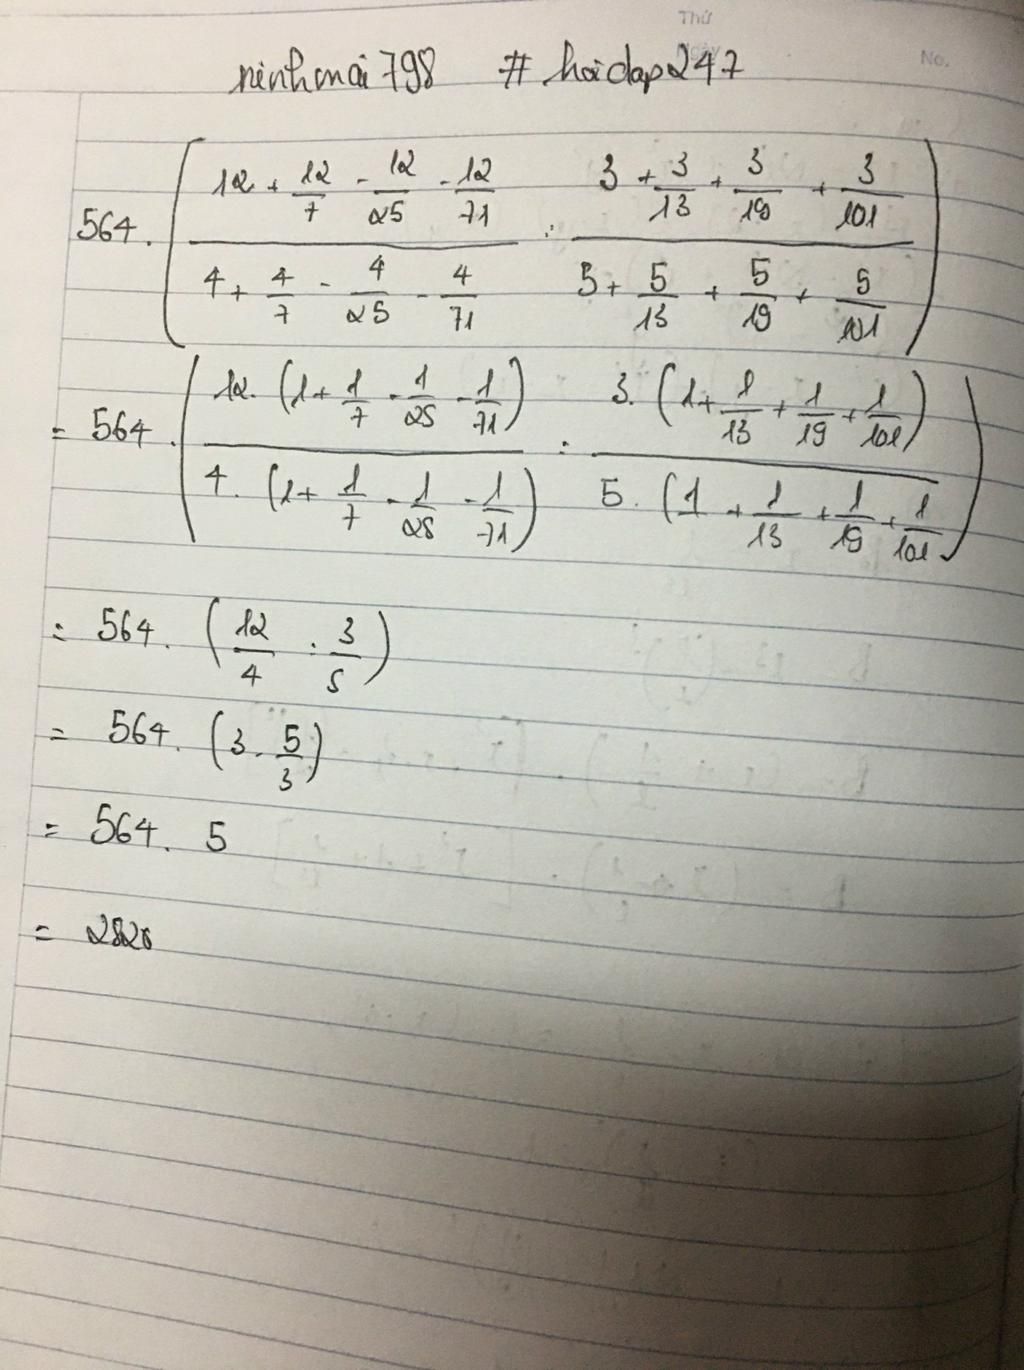 Thứ
Ngày
No.
ninhmai798 # hoidap247
564. ( (12 + 12/7 - 12/25 - 12/71) / (4 + 4/7 - 4/25 - 4/71) : (3 + 3/13 + 3/19 + 3/101) / (5 + 5/13 + 5/19 + 5/101) )
= 564. ( 12. (1 + 1/7 - 1/25 - 1/71) / 4. (1 + 1/7 - 1/25 - 1/71) : 3. (1 + 1/13 + 1/19 + 1/101) / 5. (1 + 1/13 + 1/19 + 1/101) )
= 564. ( 12/4 : 3/5 )
= 564. ( 3 . 5/3 )
= 564. 5
= 2820